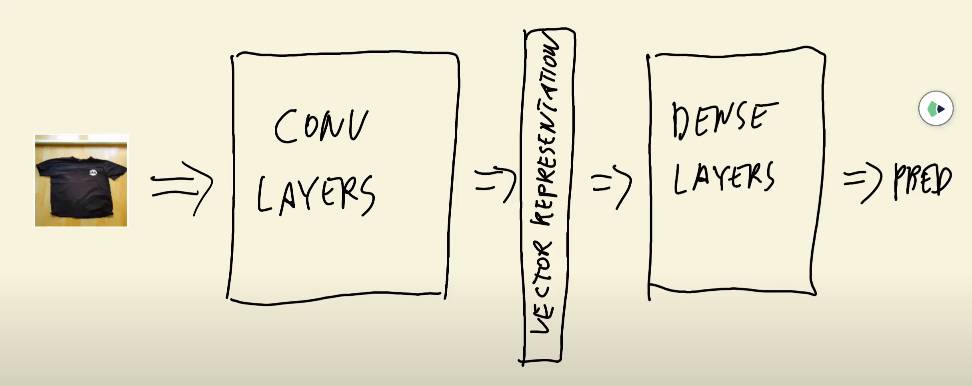 CONV
LAYERS
VECTOR REPRESENTATION
DENSE
LAYERS
PRED